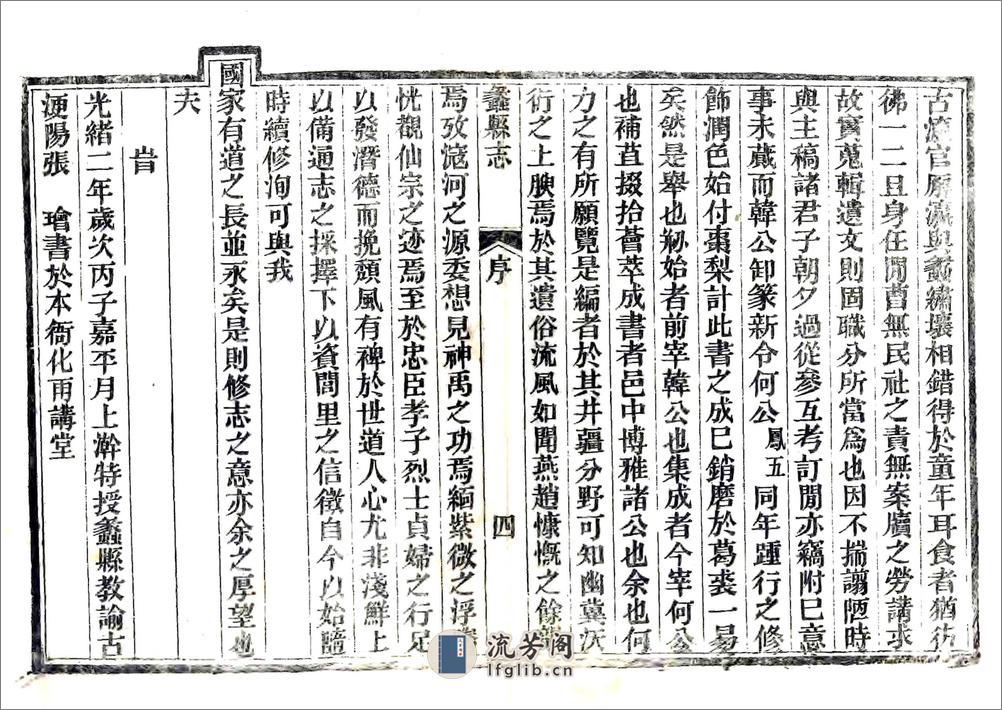 古㴑官原瀛與蠡繡壤相錯得於童年耳食者猶彷
彿一二且身任閒曹無民社之責無案牘之勞講求
故實蒐輯遺文則固職分所當為也因不揣譾陋時
與主稿諸君子朝夕過從參互考訂閒亦竊附已意
事未蕆而韓公卸篆新令何公鳳五同年踵行之修
飾潤色始付棗梨計此書之成巳銷磨於葛裘一易
矣然是舉也剏始者前宰韓公也集成者今宰何公
也補苴掇拾薈萃成書者邑中博雅諸公也余也何
力之有所願覽是編者於其井疆分野可知幽冀沃
衍之上腴焉於其遺俗流風如聞燕趙慷慨之餘
蠡縣志
序
四
焉攷滱河之源委想見神禹之功焉緬紫微之浮
恍觀仙宗之迹焉至於忠臣孝子烈士貞婦之行足
以發潛德而挽頽風有裨於世道人心尤非淺鮮上
以備通志之採擇下以資閭里之信徵自今以始隨
時續修洵可與我
國家有道之長並永矣是則修志之意亦余之厚望也
夫
旹
光緒二年歲次丙子嘉平月上澣特授蠡縣教諭古
浭陽張 璯書於本衙化雨講堂
流芳阁
lfglib.cn